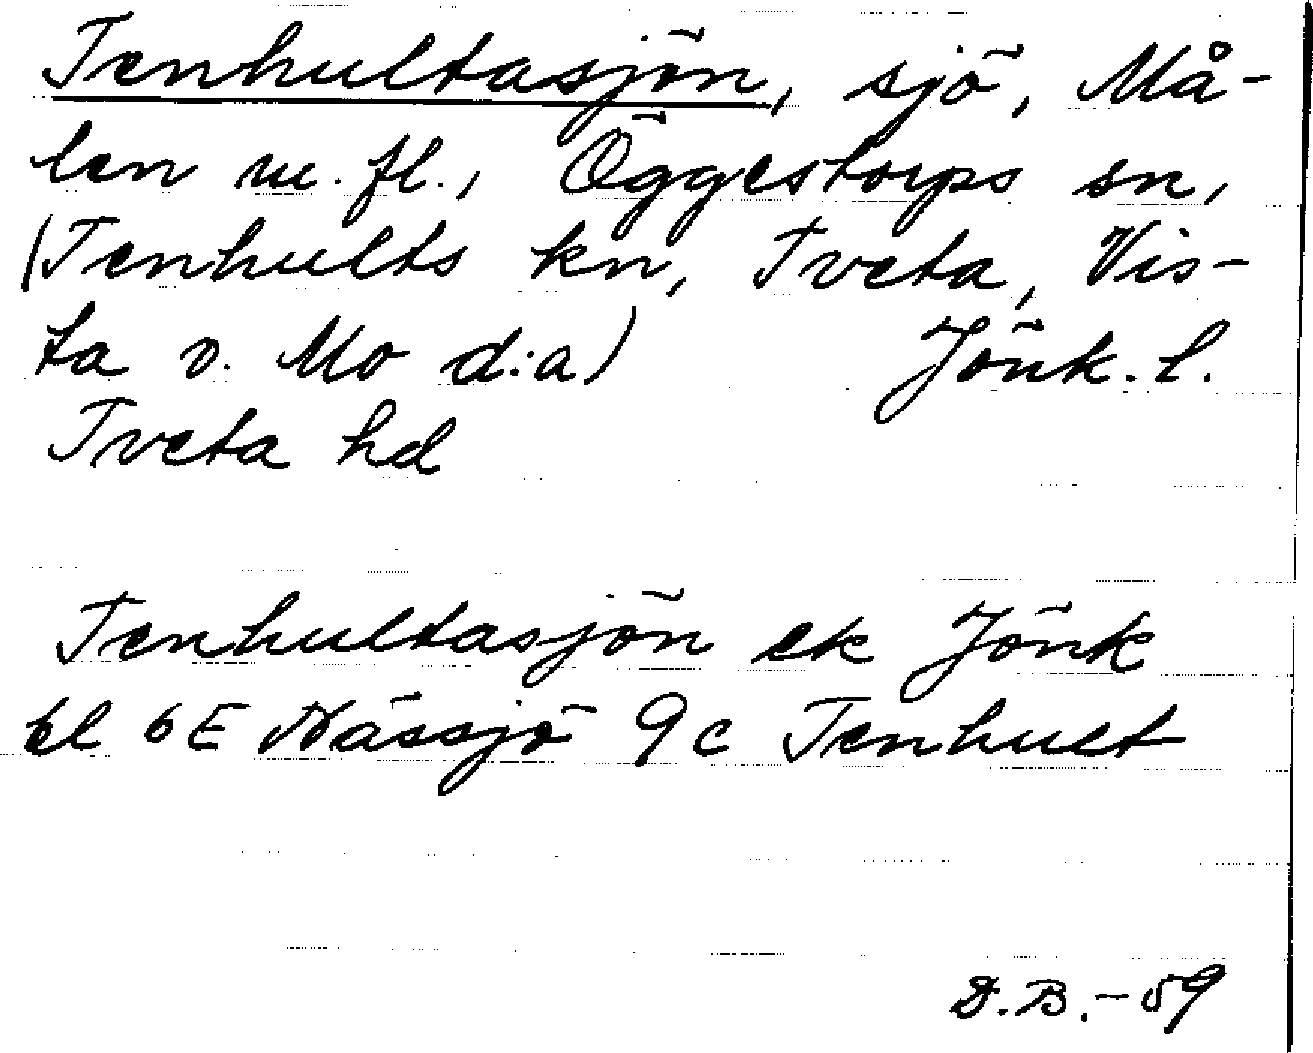 Tenhultasjön, sjö, Må-
len m. fl., Öggestorps sn,
(Tenhults kn, Tveta, Vis-
ta o. Mo d:a) Jönk. l.
Tveta hd
Tenhultasjön ek Jönk
bl 6E Nässjö 9c Tenhult
D.B.-59